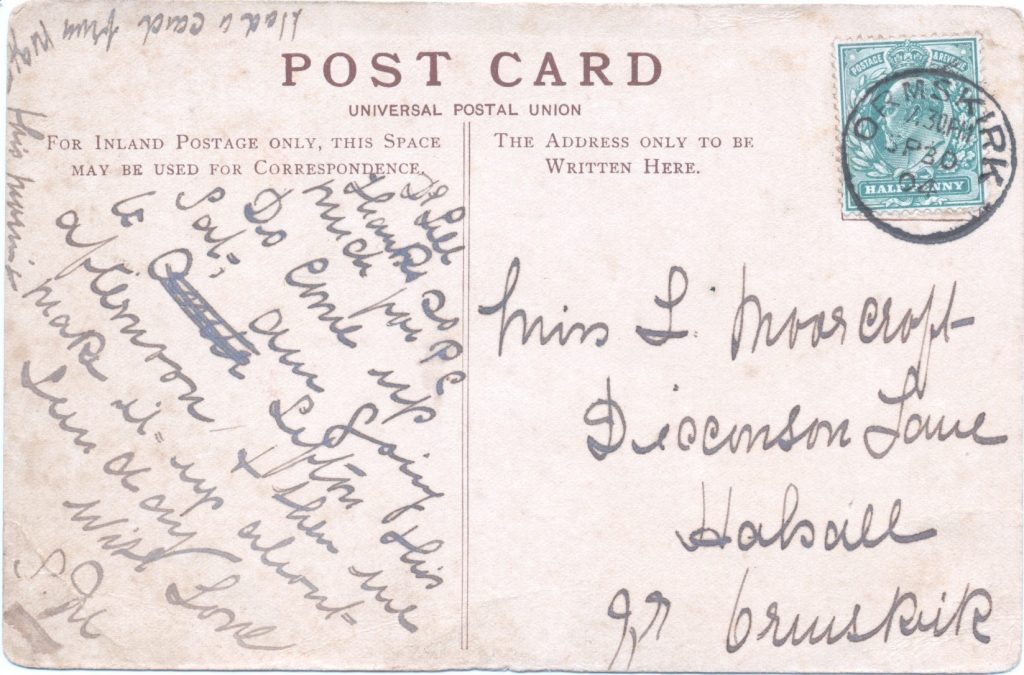 POST CARD
UNIVERSAL POSTAL UNION
FOR INLAND POSTAGE ONLY, THIS SPACE
MAY BE USED FOR CORRESPONDENCE.
THE ADDRESS ONLY TO BE
WRITTEN HERE.
POSTAGE & REVENUE
HALFPENNY
ORMSKIRK
2.30PM
SP 30
04
Dr Lill
Thanks so
much for P C
Do Come up
Sat, am Going
to this
afternoon, & then we
make it up about
Sunday
With Love
S. M
Had a card from
this morning
Miss L. Moorcroft
Dicconson Lane
Halsall
Nr Ormskirk